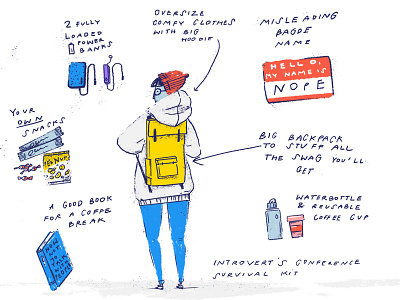 2 FULLY
LOADED
POWER
BANKS
OVERSIZE
COMFY CLOTHES
WITH BIG
HOODIE
MISLEADING
BAGDE
NAME
HELLO,
MY NAME IS
NOPE
YOUR
OWN
SNACKS
BIG BACKPACK
TO STUFF ALL
THE SWAG YOU'LL
GET
A GOOD BOOK
FOR A COFFE
BREAK
HOW
TO
TALK
WATERBOTTLE
& REUSABLE
COFFEE CUP
INTROVERT'S CONFERENCE
SURVIVAL KIT